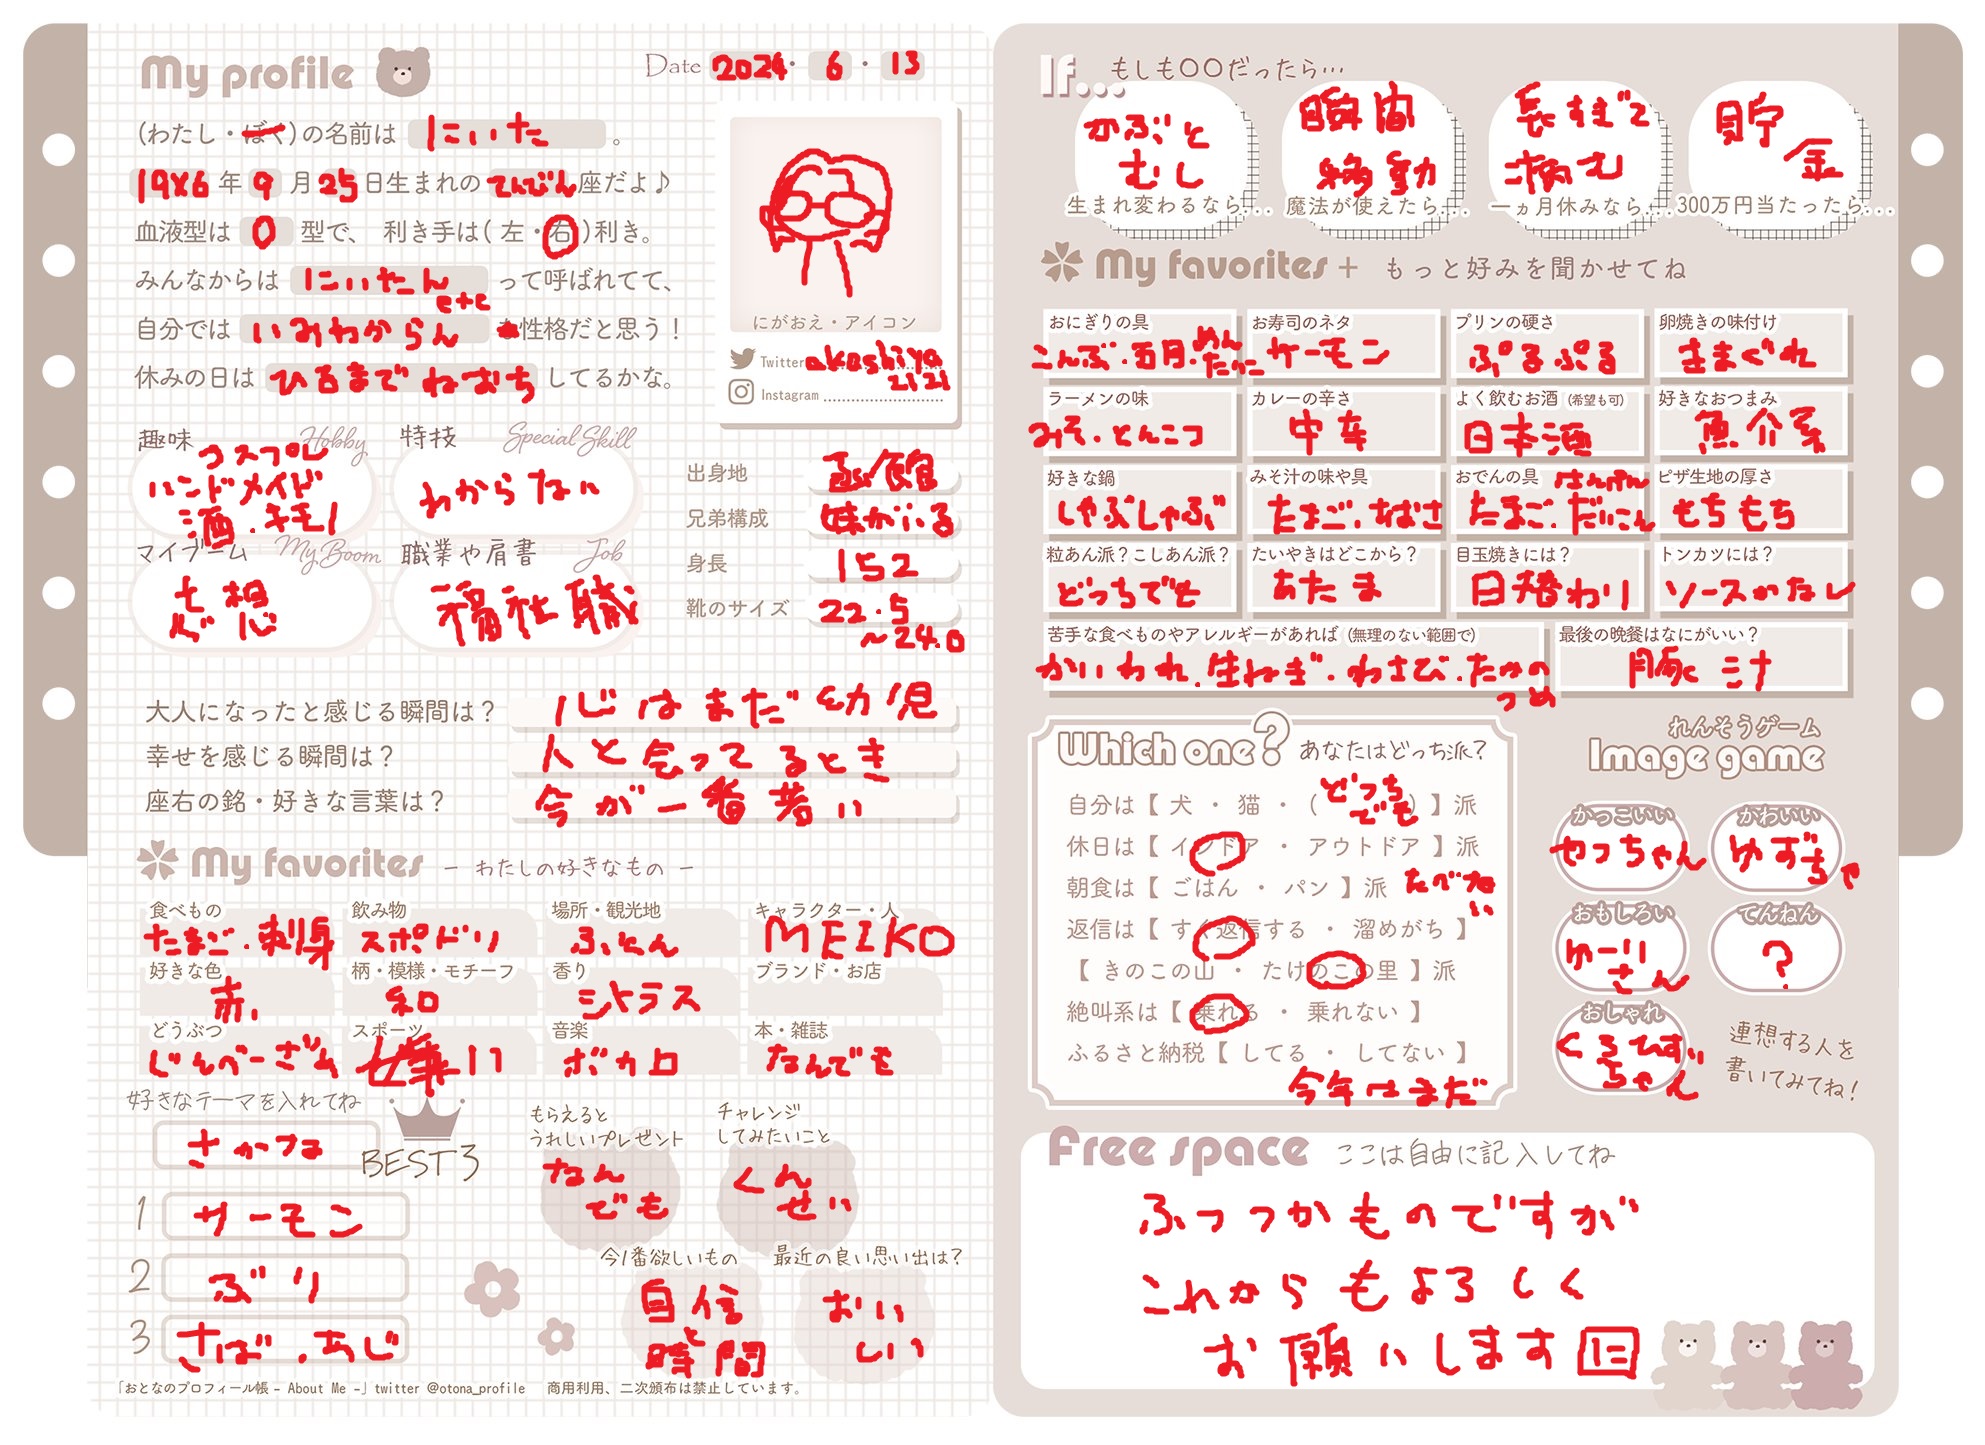 My profile
Date 2024・6・13
(わたし・ぼく)の名前は にいた 。
19X6年9月25日生まれのてんびん座だよ♪
血液型は O 型で、利き手は(左・右)利き。
みんなからは にいたん etc って呼ばれてて、
自分では いみわからん 性格だと思う！
休みの日は ひるまで ねおち してるかな。
にがおえ・アイコン
Twitter akashiya2121
Instagram
趣味 Hobby
コスプレ
ハンドメイド
酒・キモノ
特技 Special Skill
わからない
マイブーム My Boom
妄想
職業や肩書 Job
福祉職
出身地 函館
兄弟構成 妹がいる
身長 152
靴のサイズ 22.5
～24.0
大人になったと感じる瞬間は？ 心はまだ幼児
幸せを感じる瞬間は？ 人と会ってるとき
座右の銘・好きな言葉は？ 今が一番若い
My favorites － わたしの好きなもの －
食べもの たまご・刺身
飲み物 スポドリ
場所・観光地 ふとん
キャラクター・人 MEIKO
好きな色 赤
柄・模様・モチーフ 和
香り シトラス
ブランド・お店
どうぶつ じんべーざめ
スポーツ
音楽 ボカロ
本・雑誌 なんでも
好きなテーマを入れてね
さかな
BEST3
1 サーモン
2 ぶり
3 さば・あじ
もらえると
うれしいプレゼント
なん
でも
チャレンジ
してみたいこと
くん
せい
今1番欲しいもの
自信
と
時間
最近の良い思い出は？
おい
しい
「おとなのプロフィール帳 – About Me –」twitter @otona_profile 商用利用、二次頒布は禁止しています。
If... もしも〇〇だったら…
かぶと
むし
生まれ変わるなら...
瞬間
移動
魔法が使えたら...
長すぎて
病む
一ヵ月休みなら...
貯
金
300万円当たったら...
My favorites + もっと好みを聞かせてね
おにぎりの具 こんぶ・百月・めんたいこ
お寿司のネタ サーモン
プリンの硬さ ぷるぷる
卵焼きの味付け きまぐれ
ラーメンの味 みそ・とんこつ
カレーの辛さ 中辛
よく飲むお酒 (希望も可) 日本酒
好きなおつまみ 魚介系
好きな鍋 しゃぶしゃぶ
みそ汁の味や具 たまご・あおさ
おでんの具 はんぺん
たまご・だいこん
ピザ生地の厚さ もちもち
粒あん派？こしあん派？ どっちでも
たいやきはどこから？ あたま
目玉焼きには？ 日替わり
トンカツには？ ソースかなし
苦手な食べものやアレルギーがあれば (無理のない範囲で)
かいわれ・生ねぎ・わさび・たかのつめ
最後の晩餐はなにがいい？ 豚汁
Which one? あなたはどっち派？
自分は【 犬 ・ 猫 ・ ( どっちでも ) 】派
休日は【 インドア ・ アウトドア 】派
朝食は【 ごはん ・ パン 】派 たべない
返信は【 すぐ返信する ・ 溜めがち 】
【 きのこの山 ・ たけのこの里 】派
絶叫系は【 乗れる ・ 乗れない 】
ふるさと納税【 してる ・ してない 】
今年はまだ
れんそうゲーム
Image game
かっこいい やっちゃん
かわいい ゆずちゃ
おもしろい ゆーりさん
てんねん ?
おしゃれ くろひすいちゃん
連想する人を
書いてみてね！
Free space ここは自由に記入してね
ふつつかものですが
これからもよろしく
お願いします に